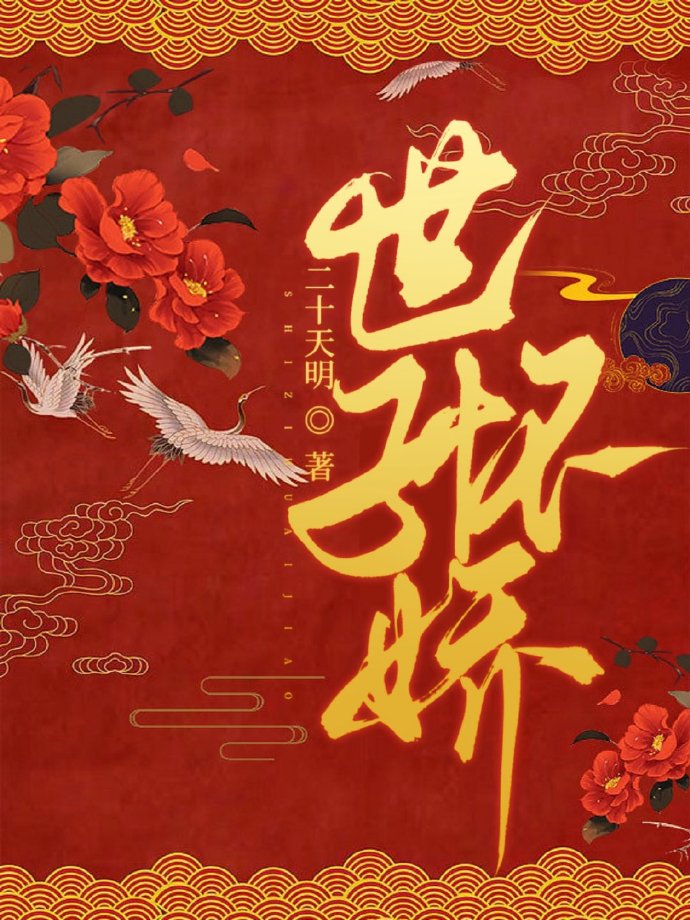 世子怀娇
二十天明◎著
SHIZIHUAIJIAO